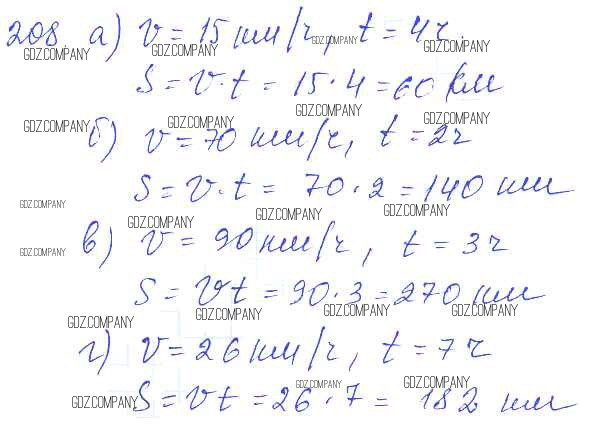 208 а) v = 15 км/ч, t = 4ч.
GDZ.COMPANY GDZ.COMPANY GDZ.COMPANY GDZ.COMPANY
S = v·t = 15·4 = 60 км
GDZ.COMPANY
GDZ.COMPANY GDZ.COMPANY GDZ.COMPANY
б) v = 70 км/ч, t = 2ч
S = v·t = 70·2 = 140 км
GDZ.COMPANY GDZ.COMPANY GDZ.COMPANY GDZ.COMPANY
в) v = 90 км/ч, t = 3ч
GDZ.COMPANY
S = vt = 90·3 = 270 км
GDZ.COMPANY GDZ.COMPANY GDZ.COMPANY GDZ.COMPANY
г) v = 26 км/ч, t = 7ч
GDZ.COMPANY GDZ.COMPANY
GDZ.COMPANY S = vt = 26·7 = 182 км